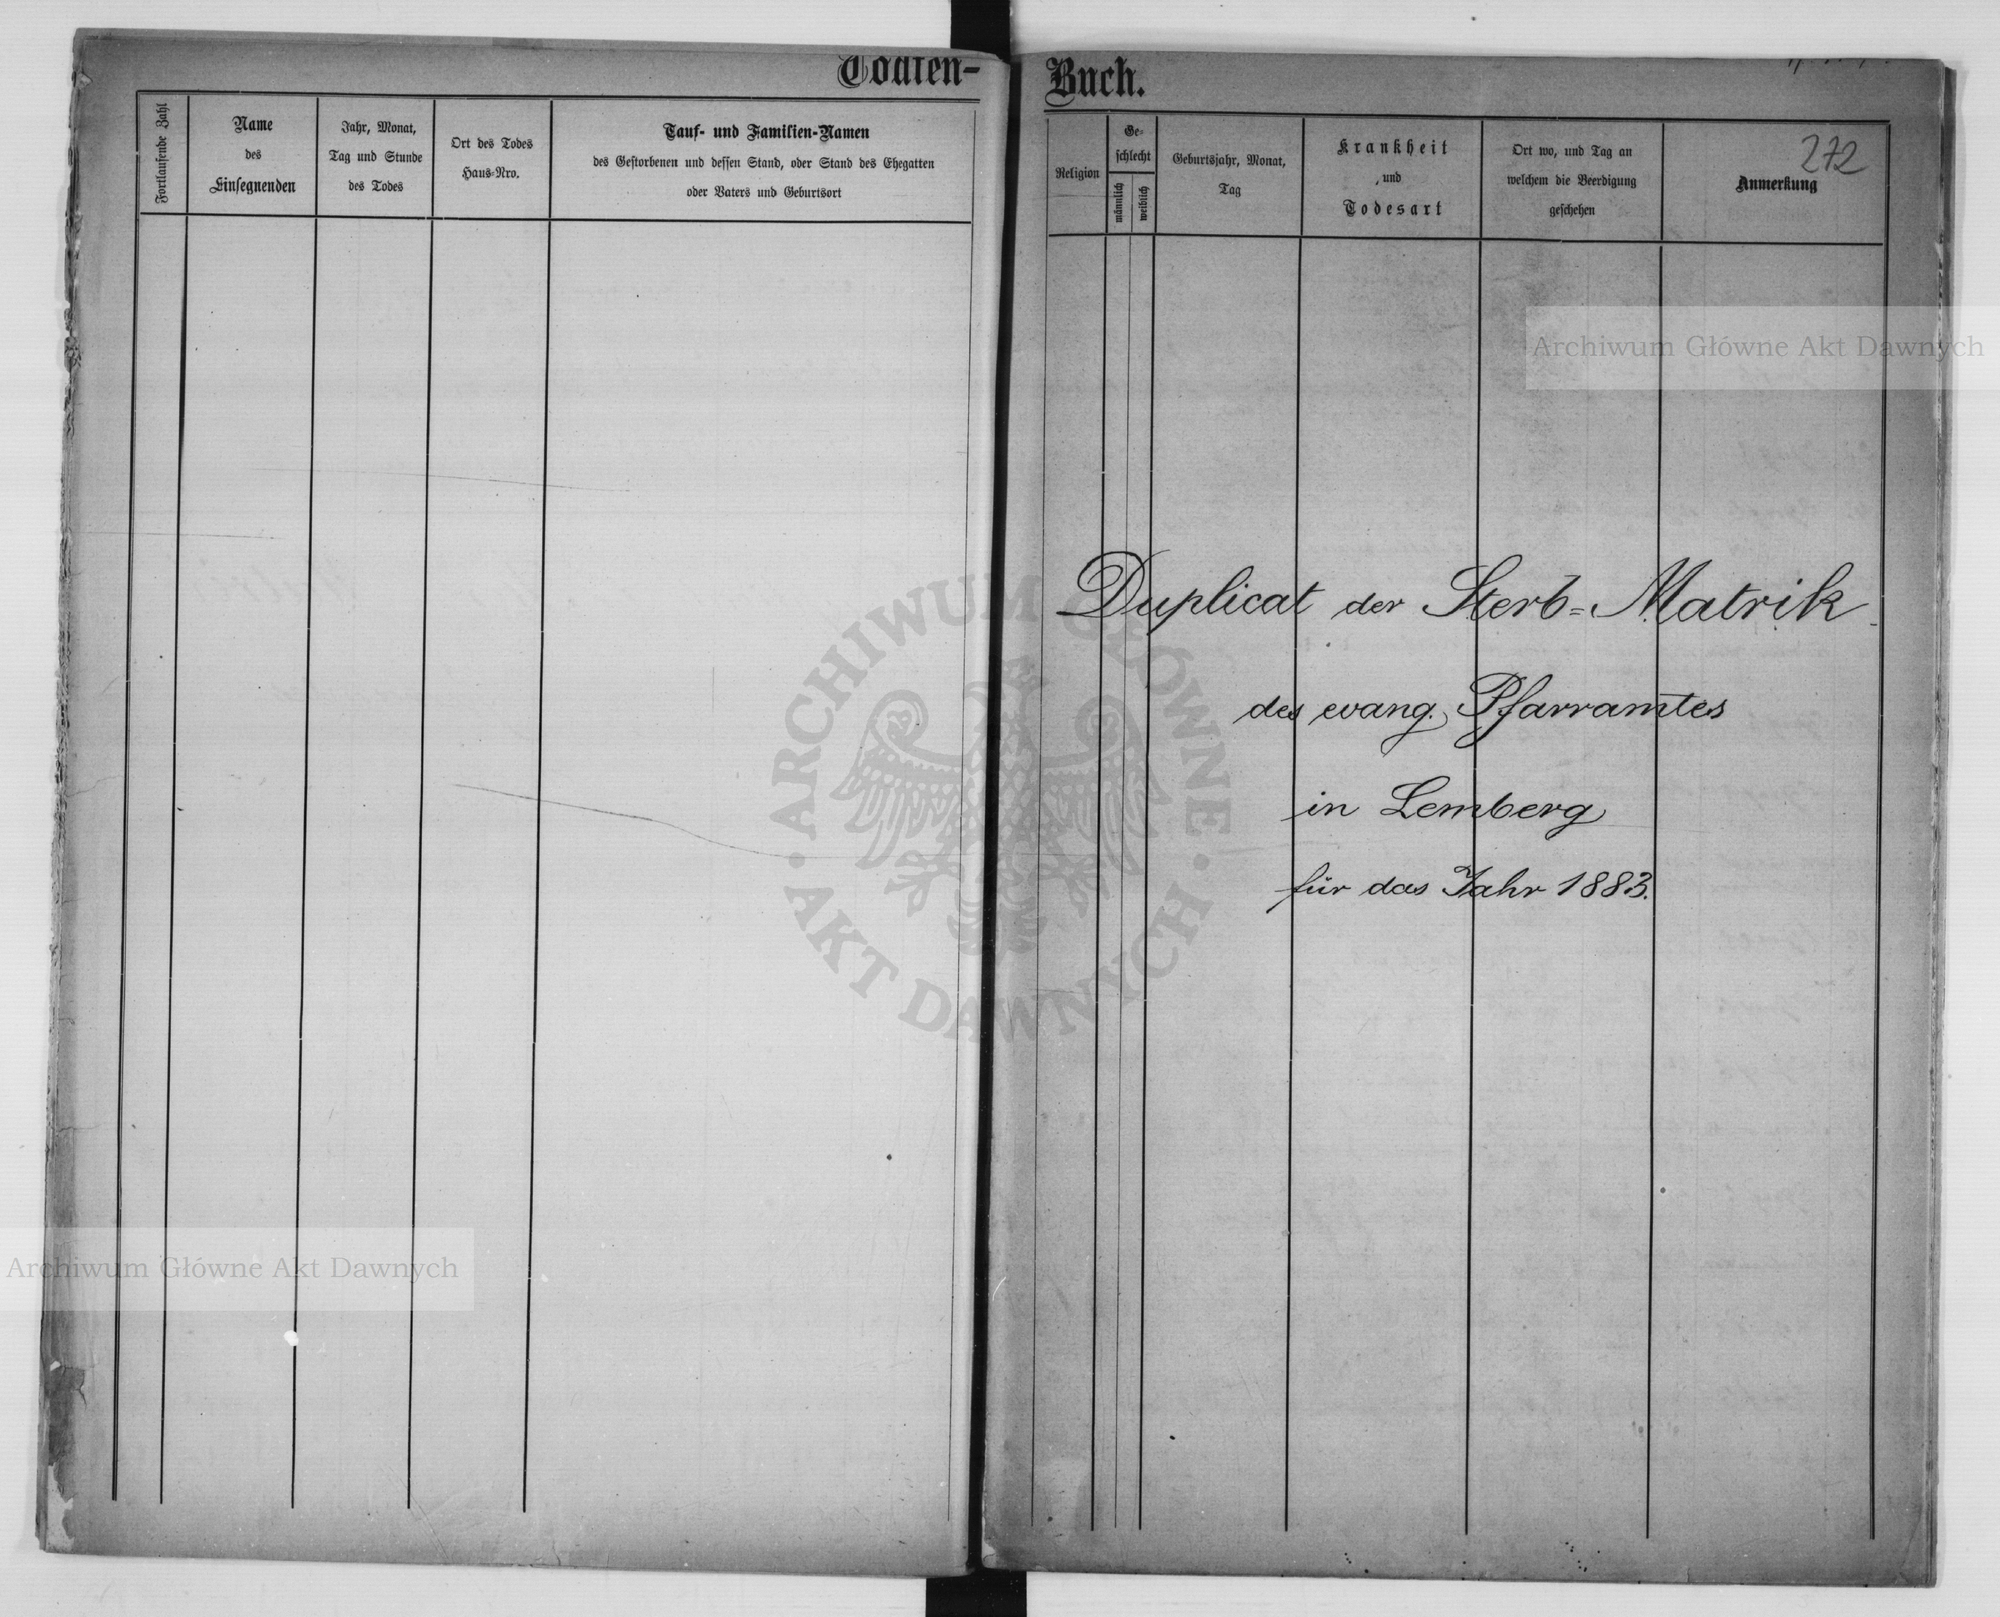 Todten-
Fortlaufende Zahl
Name
des
Einsegnenden
Jahr, Monat,
Tag und Stunde
des Todes
Ort des Todes
Haus-Nro.
Tauf- und Familien-Namen
des Gestorbenen und dessen Stand, oder Stand des Ehegatten
oder Vaters und Geburtsort
Buch.
272
Religion
Ge-
schlecht
männlich
weiblich
Geburtsjahr, Monat,
Tag
Krankheit
und
Todesart
Ort wo, und Tag an
welchem die Beerdigung
geschehen
Anmerkung
Duplicat der Sterb=Matrik
des evang. Pfarramtes
in Lemberg
für das Jahr 1883.
Archiwum Główne Akt Dawnych
ARCHIWUM GŁÓWNE · AKT DAWNYCH ·
Archiwum Główne Akt Dawnych